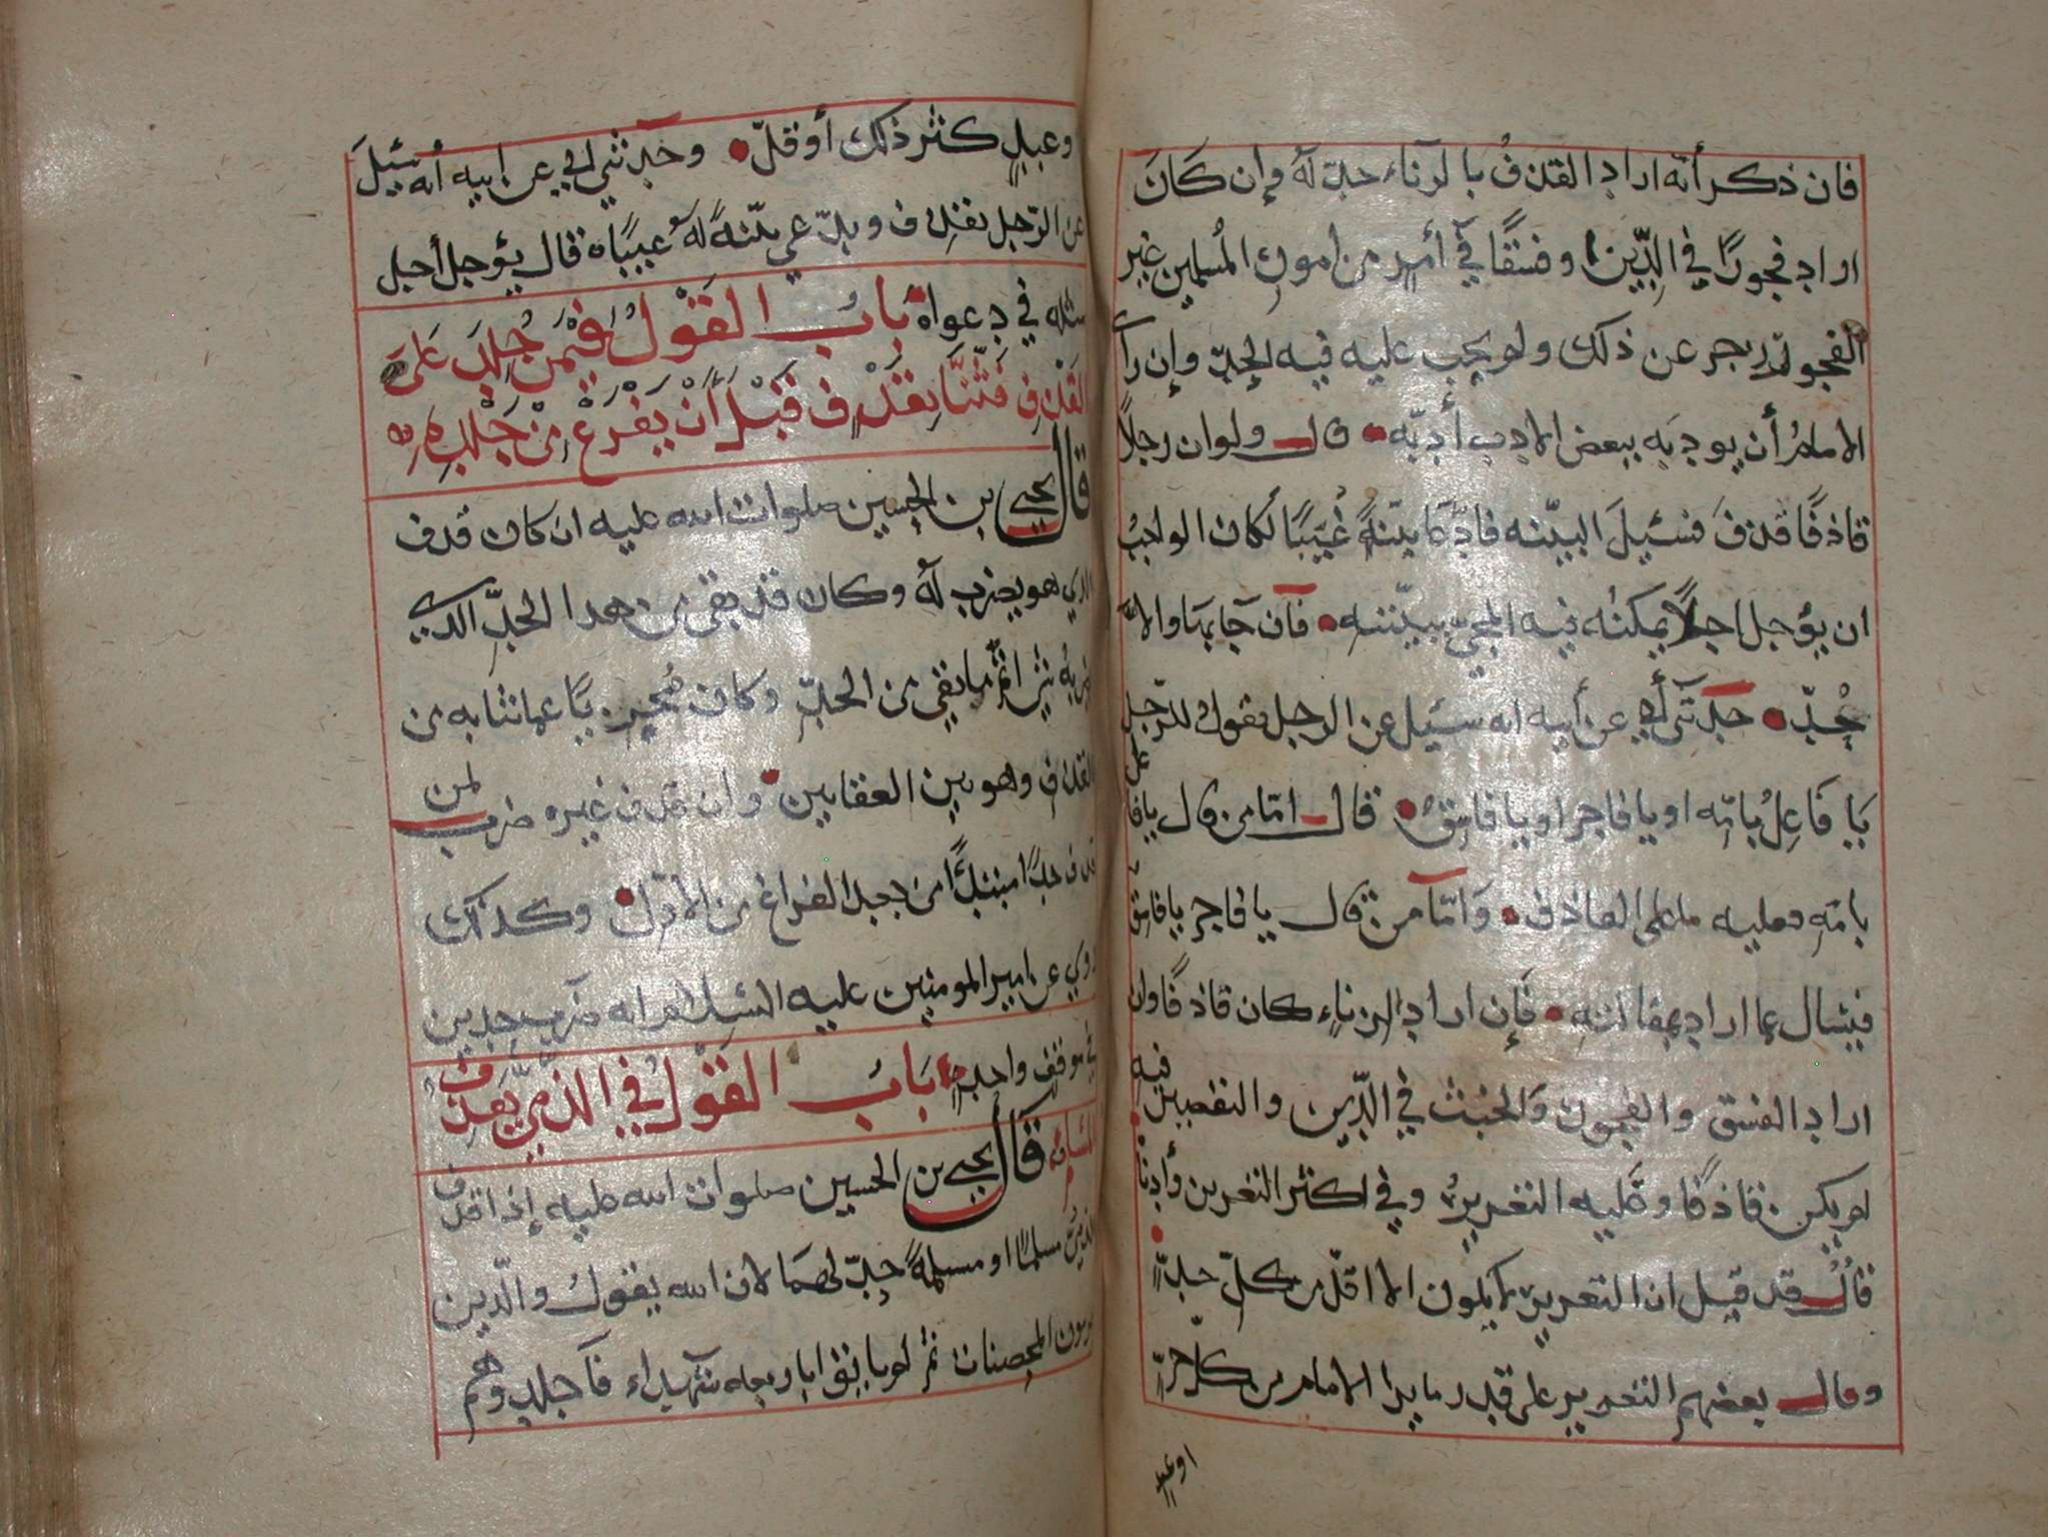 فان ذكر أنه اراد القذف بالزناء حد له وإن كان
اراد فجورًا في الدين او فسقًا في أمر من امور المسلمين غير
الفجور زجر عن ذلك ولم يجب عليه فيه الحد وإن رأى
الامام أن يودبه ببعض الادب أدبه قال ولو ان رجلاً
قاذفًا قذف فسئل البينه فادعا بينةً غيبًا لكان الواجب
ان يؤجل اجلاً يمكنه فيه المجي ببينته فان جا بها والا
حد حدثني أبي عن أبيه انه سئيل عن الرجل يقول للرجل
يا فاعل بامه او يا فاجر او يا فاسق قال اما من قال يا فاعل
بامه فعليه ما على القاذف واما من قال يا فاجر يا فاسق
فيسال عما اراد بمقالته فإن اراد الزناء كان قاذفًا وان
اراد الفسق والفجور والخبث في الدين والتقصير فيه
لم يكن قاذفًا وعليه التعزير وفي اكثر التعزير وأدناه
قال قد قيل ان التعزير لا يكون الا اقل من كل حد
وقال بعضهم التعزير على قدر ما يرا الامام من كل حر
او عبد
وعبدٍ كثر ذلك أو قل وحدثني ابي عن ابيه أنه سئيل
عن الرجل يقذف ويدعي بينةً له غيبًا قال يؤجل أجل
مثله في دعواه باب القول فيمن جلد على
القذف فثنا بقذف قبل أن يفرغ من جلده
قال يحيى بن الحسين صلوات الله عليه ان كان قذف
الذي هو يضرب له وكان قد بقي من هذا الحد الذي
ما بقي من الحد وكان مجزيًا عما ثنا به من
القذف وهو بين العقابين وان قذف غيره ضرب لمن
قذف حدًا مبتدًا من بعد الفراغ من الاول وكذلك
روي عن امير المومنين عليه السلام انه ضرب حدين
في موقف واحد باب القول في الذمي يقذف
المسلم قال يحيى بن الحسين صلوات الله عليه إذا قذف
الذمي مسلمًا او مسلمةً حد لهما لان الله يقول والذين
يرمون المحصنات ثم لم ياتوا باربعه شهداء فاجلدوهم